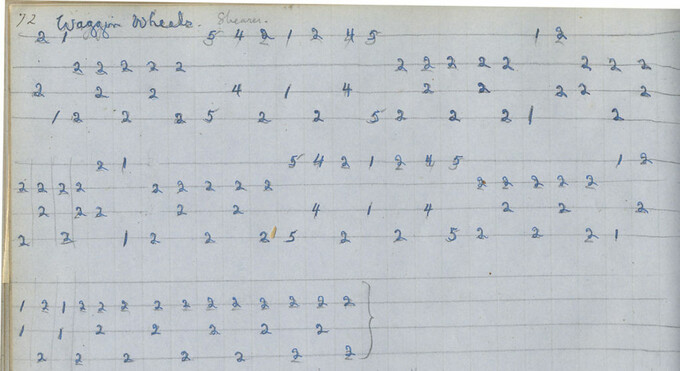 72 Waggon Wheels. Shearer.
2 1 5 4 2 1 2 4 5 1 2
2 2 2 2 2 2 2 2 2 2 2 2 2
2 2 2 4 1 4 2 2 2 2 2
1 2 2 2 5 2 2 5 2 2 2 1 2
2 1 5 4 2 1 2 4 5 1 2
2 2 2 2 2 2 2 2 2 2 2 2 2 2
2 2 2 2 2 4 1 4 2 2 2
2 2 1 2 2 2 1 5 2 2 5 2 2 2 1
1 2 1 2 2 2 2 2 2 2 2 2 2 2 2
1 1 2 2 2 2 2
2 2 2 2 2 2 2